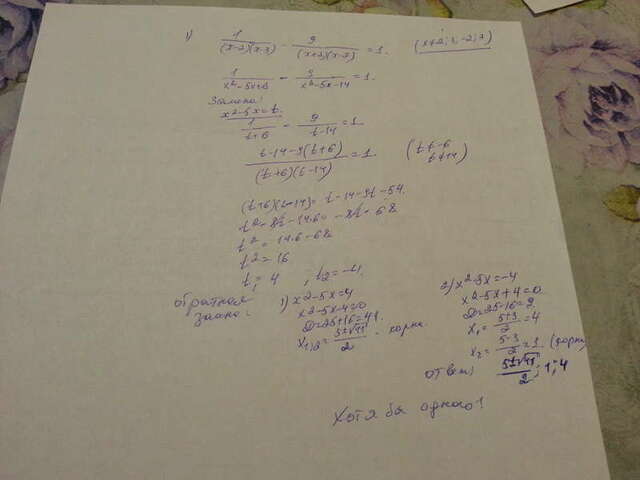 1) 1/((x-2)(x-3)) - 9/((x+2)(x-7)) = 1. (x≠2; 3; -2; 7)
1/(x²-5x+6) - 9/(x²-5x-14) = 1.
Замена:
x²-5x=t.
1/(t+6) - 9/(t-14) = 1
(t-14-9(t+6))/((t+6)(t-14)) = 1 (t≠-6
t≠14)
(t+6)(t-14) = t-14-9t-54.
t²-8t-14·6 = -8t-68
t² = 14·6-68
t² = 16
t₁ = 4 ; t₂=-4.
обратная
замена:
1) x²-5x=4
x²-5x-4=0
D=25+16=41.
x₁,₂ = (5±√41)/2 - корни.
2) x²-5x=-4
x²-5x+4=0
D=25-16=9.
x₁ = (5+3)/2 = 4
x₂ = (5-3)/2 = 1 (корни)
ответ: (5±√41)/2; 1; 4
Хотя бы одного!